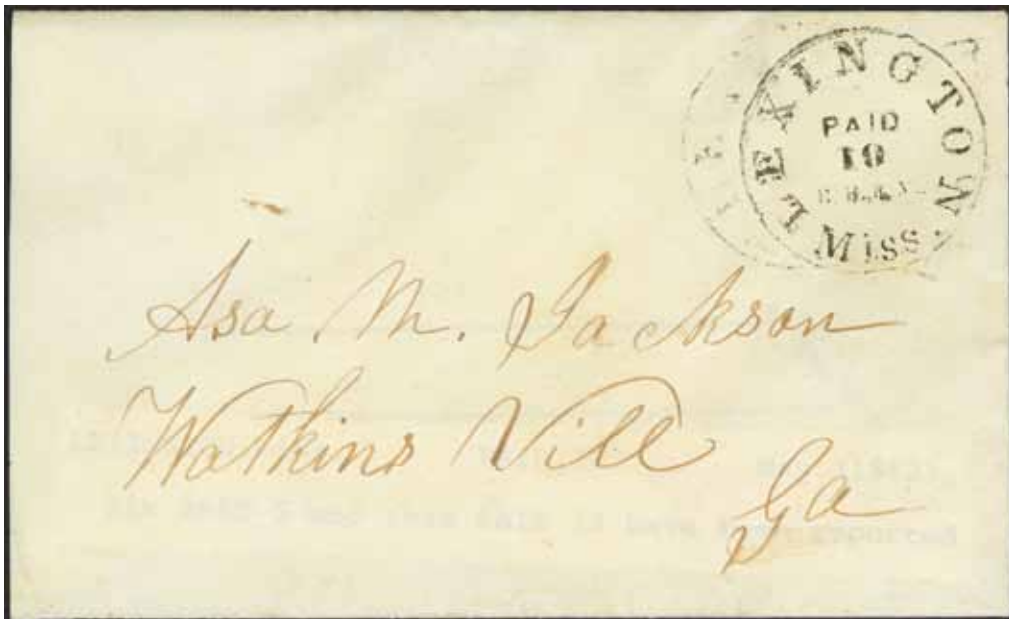 LEXINGTON
PAID
10
Miss.
Asa M. Jackson
Watkins Vill
Ga